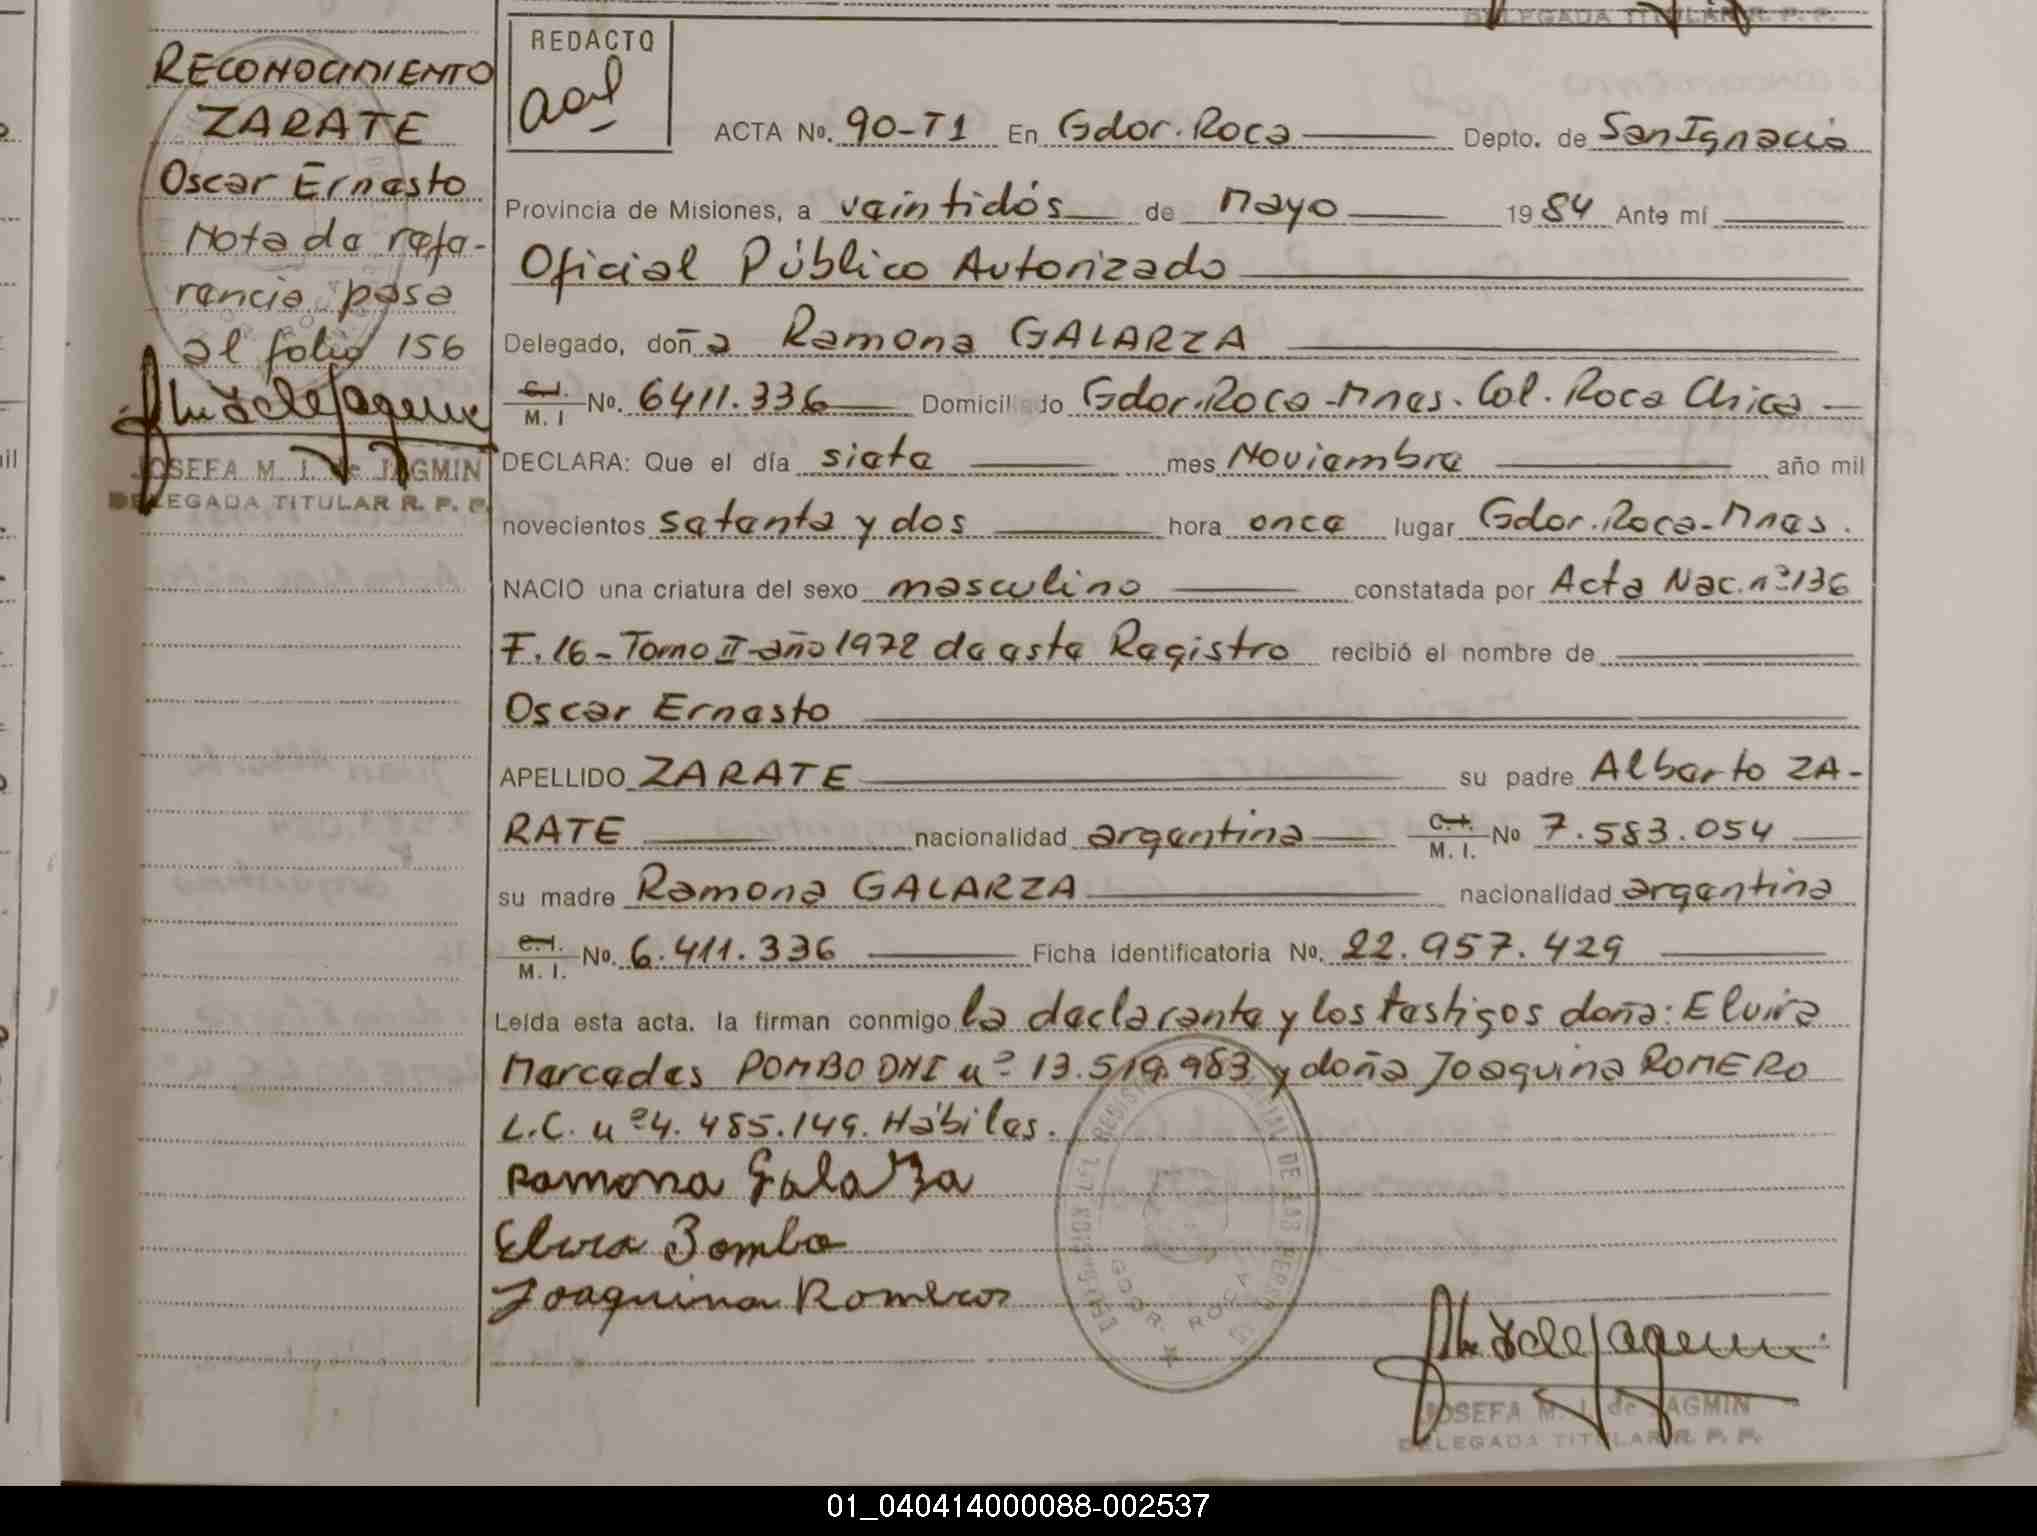 DELEGADA TITULAR R. P. P.
RECONOCIMIENTO
ZARATE
Oscar Ernesto
Nota de refe-
rencia pasa
al folio 156
JOSEFA M. I. de JAGMIN
DELEGADA TITULAR R. P. P.
REDACTO
ACTA No. 90-T1 En Gdor. Roca Depto. de San Ignacio
Provincia de Misiones, a veintidós de Mayo 1984 Ante mí
Oficial Público Autorizado
Delegado, doña Ramona GALARZA
C.I. M. I No. 6411.336 Domiciliado Gdor. Roca-Mnes. Col. Roca Chica
DECLARA: Que el día siete mes Noviembre año mil
novecientos setenta y dos hora once lugar Gdor. Roca-Mnes.
NACIO una criatura del sexo masculino constatada por Acta Nac. nº 136
F. 16 - Tomo II - año 1972 de este Registro recibió el nombre de
Oscar Ernesto
APELLIDO ZARATE su padre Alberto ZA-
RATE nacionalidad argentina C.I. M. I. No 7.583.054
su madre Ramona GALARZA nacionalidad argentina
C.I. M. I. No. 6.411.336 Ficha identificatoria No. 22.957.429
Leída esta acta, la firman conmigo la declarante y los testigos doña: Elvira
Mercedes POMBO DNI nº 13.519.983 y doña Joaquina ROMERO
L.C. nº 4.485.149. Hábiles.
Ramona Galarza
Elvira Pombo
Joaquina Romero
GDOR. ROCA
JOSEFA M. I. de JAGMIN
DELEGADA TITULAR R. P. P.
01_040414000088-002537